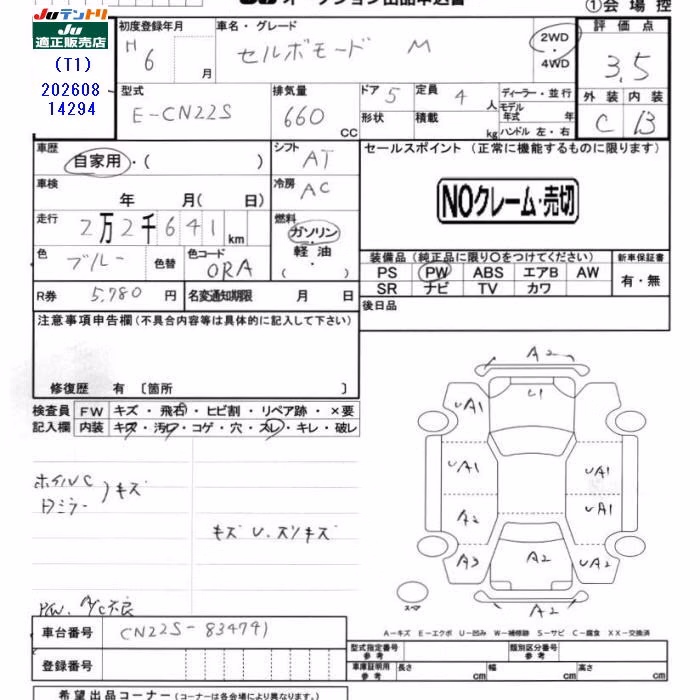 JUテントリ JU オークション出品申込書 ①会場控
JU 適正販売店
(T1)
202608
14294
初度登録年月 H6 月
車名・グレード セルボモード M
2WD・4WD
評価点 3.5
外装 C 内装 B
型式 E-CN22S
排気量 660 CC
ドア 5 定員 4 人
形状 積載 kg
ディーラー・並行
モデル年式 年
ハンドル 左・右
車歴 自家用・( )
シフト AT
セールスポイント(正常に機能するものに限ります)
車検 年 月( 日)
冷房 AC
NOクレーム・売切
走行 2万2千641 km
燃料 ガソリン・軽油・( )
色 ブルー 色替 色コード 0RA
装備品(純正品に限り○をつけてください) 新車保証書
PS PW ABS エアB AW 有・無
SR ナビ TV カワ
R券 5,780 円 名変通知期限 月 日
後日品
注意事項申告欄(不具合内容等は具体的に記入して下さい)
修復歴 有〔箇所 〕
検査員 FW キズ・飛石・ヒビ割・リペア跡・×要
記入欄 内装 キズ・汚レ・コゲ・穴・スレ・キレ・破レ
A2
UA1 U1 UA1
UA1 UA1
A2 UA1
A3 A2 UA2
A2
スペア
ホイルC
Dミラー )キズ
キズ U. スリキズ
P/W. A/C不良
A-キズ E-エクボ U-凹み W-補修跡 S-サビ C-腐食 XX-交換済
車台番号 CN22S-834741
型式指定番号 参考 類別区分番号 参考
登録番号
車庫証明用 参考 長さ cm 幅 cm 高さ cm
希望出品コーナー(コーナーは各会場により異なります。)